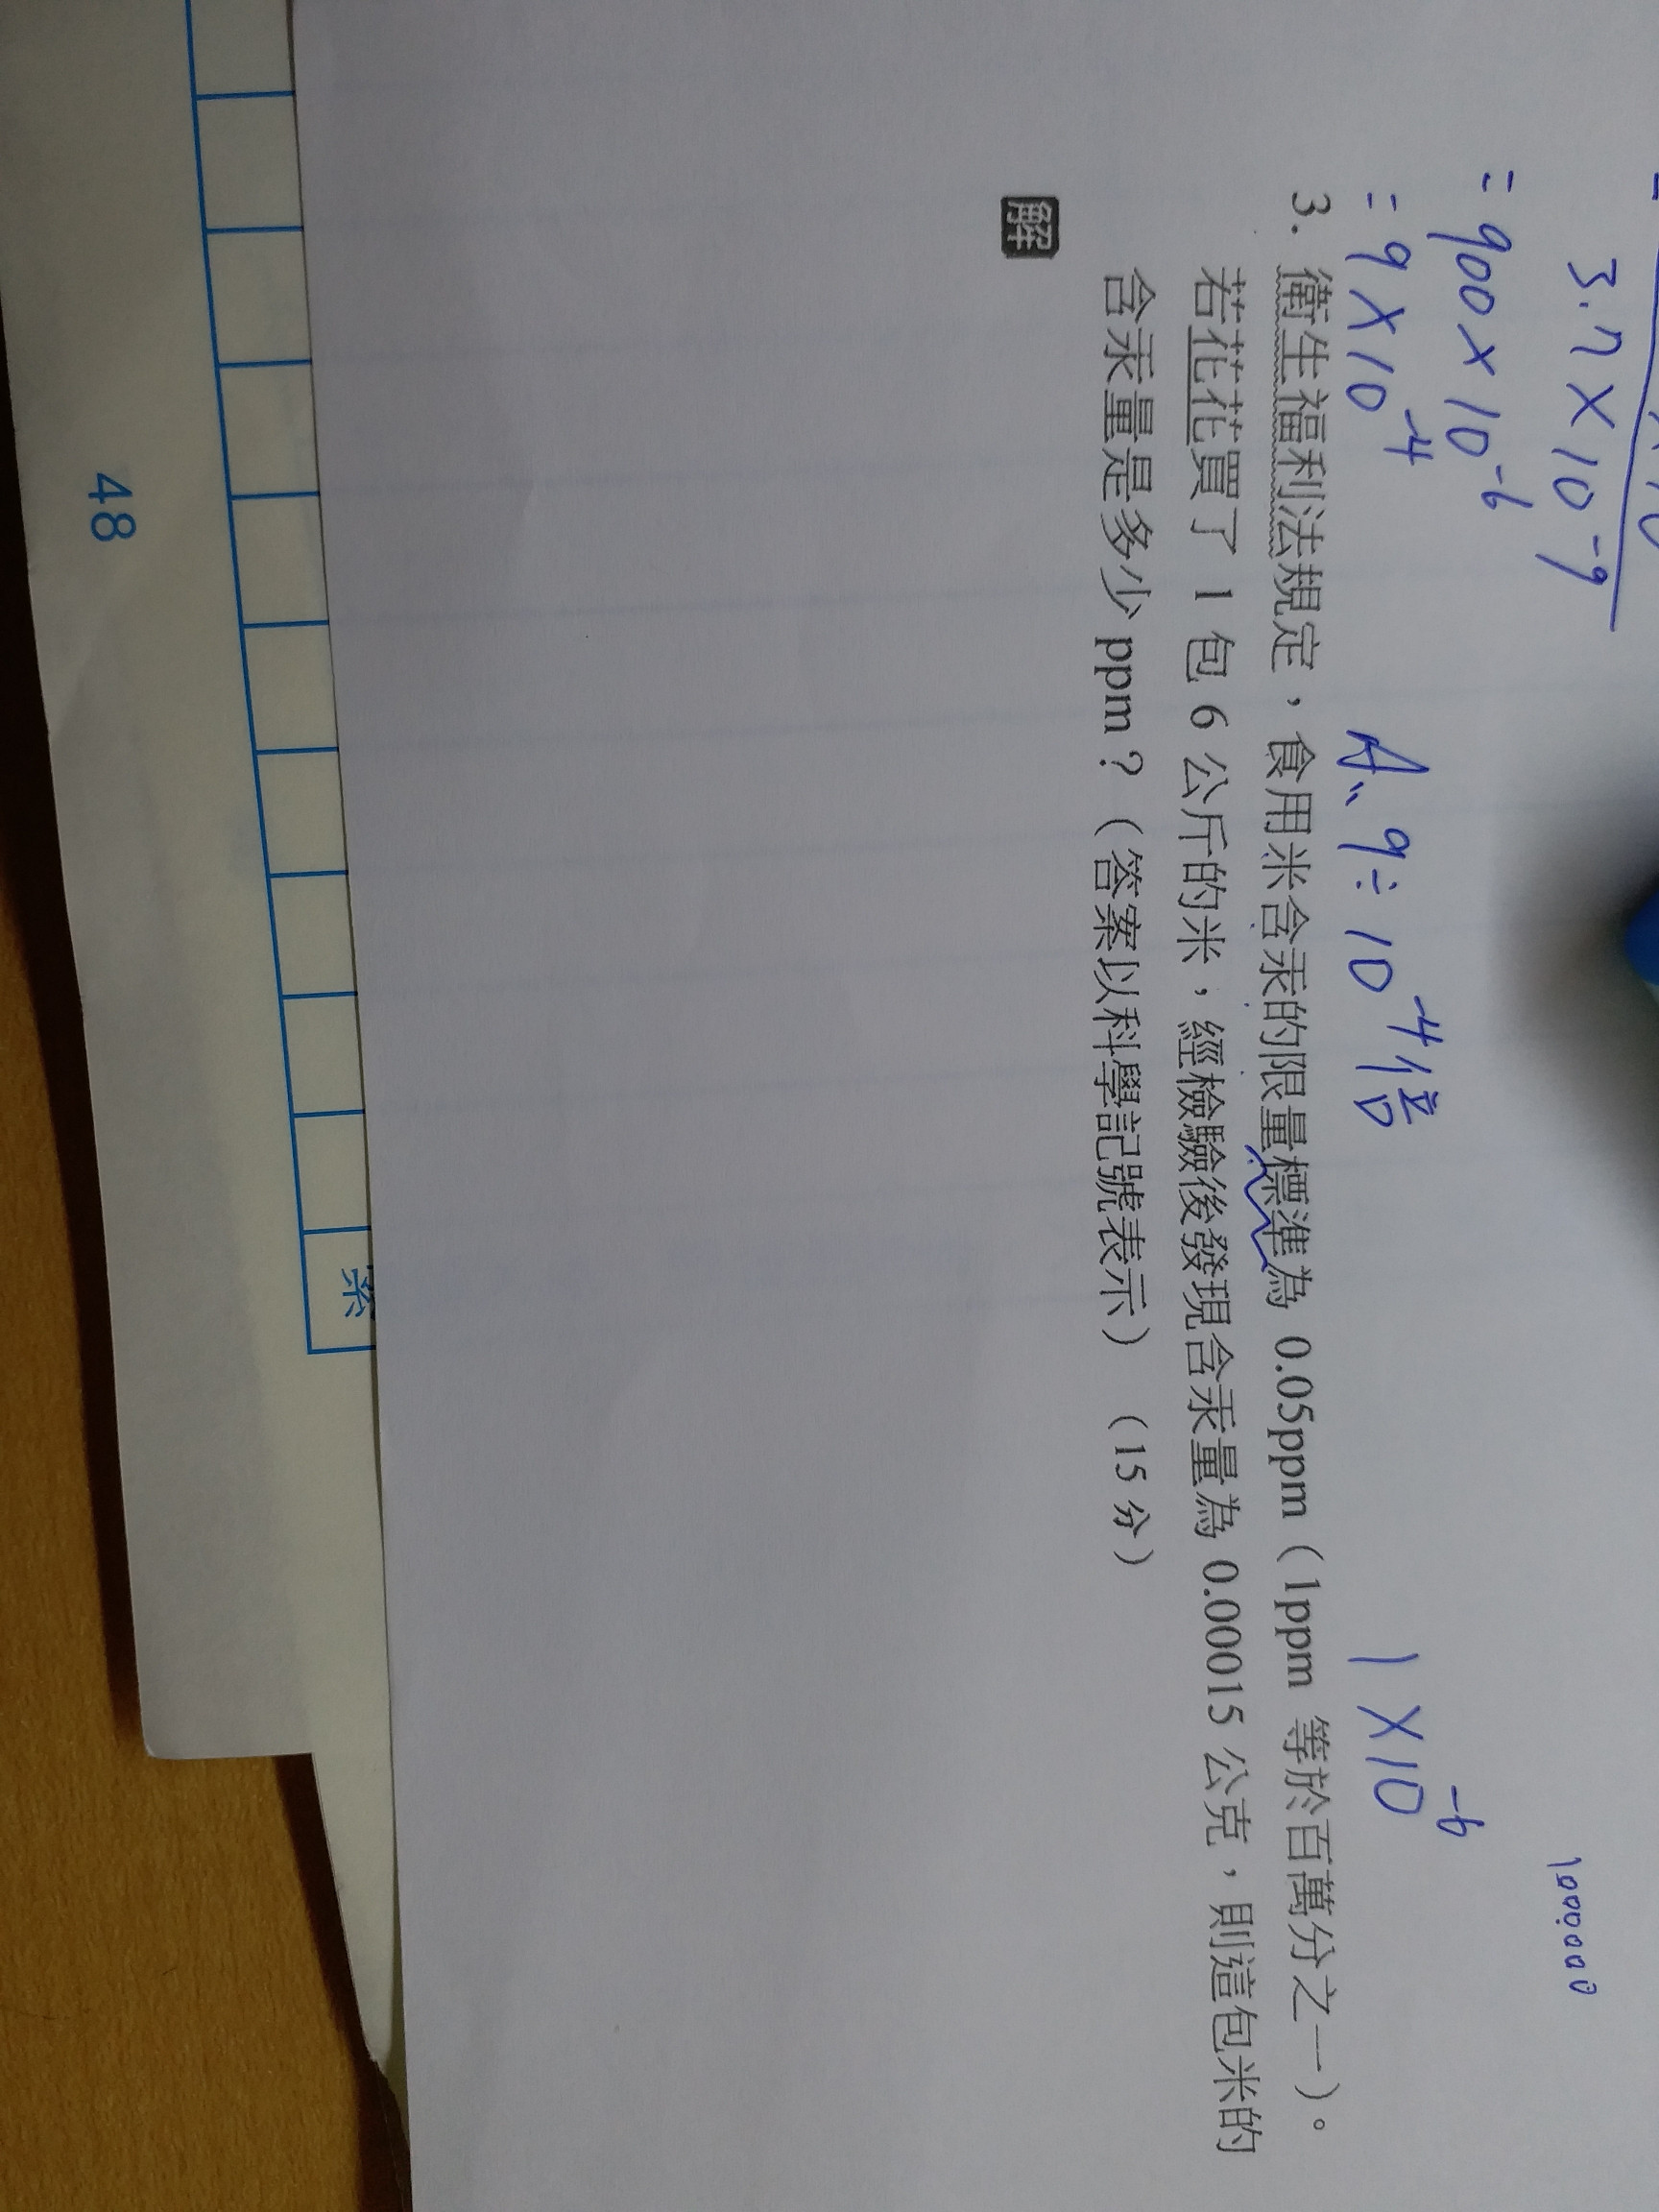 3.7×10⁻⁹
=900×10⁻⁶
=9×10⁻⁴
A: 9×10⁻⁴倍
1×10⁻⁶
1000000
3. 衛生福利法規定，食用米含汞的限量標準為 0.05ppm（1ppm 等於百萬分之一）。
若花花買了 1 包 6 公斤的米，經檢驗後發現含汞量為 0.00015 公克，則這包米的
含汞量是多少 ppm？（答案以科學記號表示）（15 分）
解
48